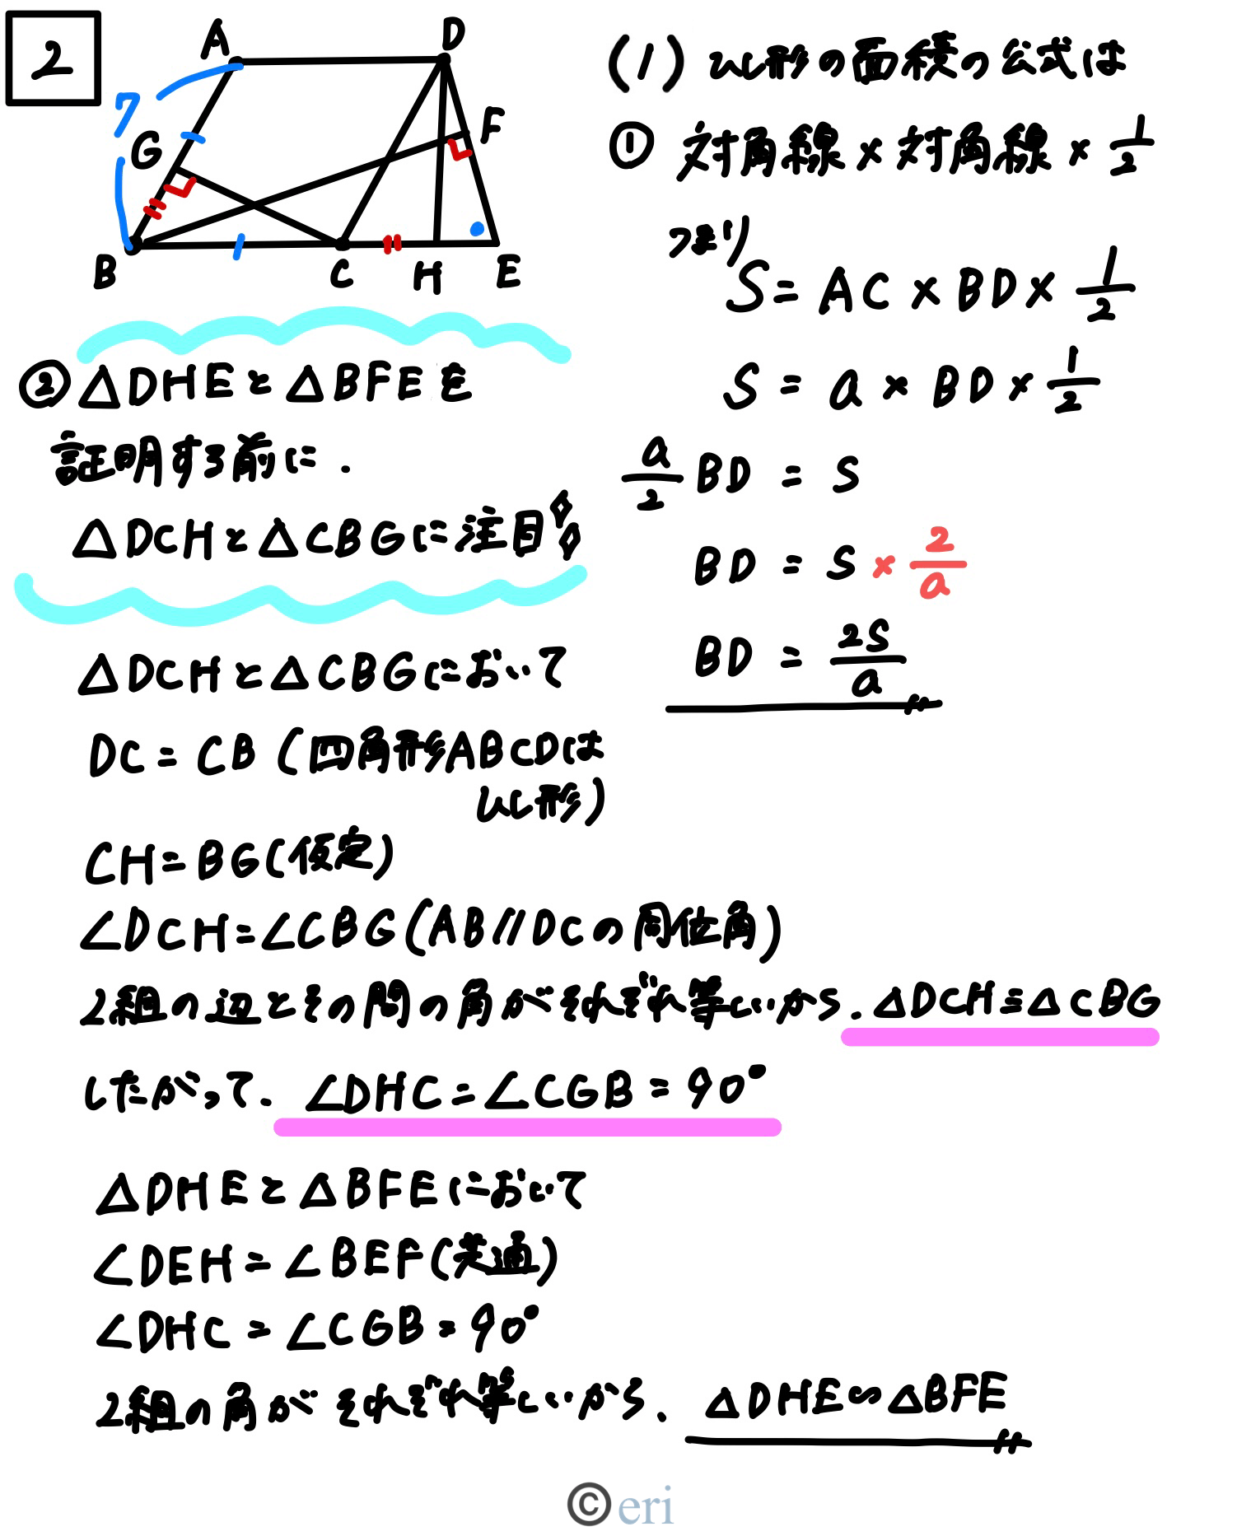 2
A
D
7
G
F
B
C
H
E
(1) ひし形の面積の公式は
① 対角線×対角線×1/2
つまり
S=AC×BD×1/2
S=a×BD×1/2
a/2 BD=S
BD=S×2/a
BD=2S/a
② △DHEと△BFEを
証明する前に.
△DCHと△CBGに注目
△DCHと△CBGにおいて
DC=CB (四角形ABCDは
ひし形)
CH=BG(仮定)
∠DCH=∠CBG(AB//DCの同位角)
2組の辺とその間の角がそれぞれ等しいから.△DCH≡△CBG
したがって.∠DHC=∠CGB=90°
△DHEと△BFEにおいて
∠DEH=∠BEF(共通)
∠DHC=∠CGB=90°
2組の角がそれぞれ等しいから.△DHE∽△BFE
©eri